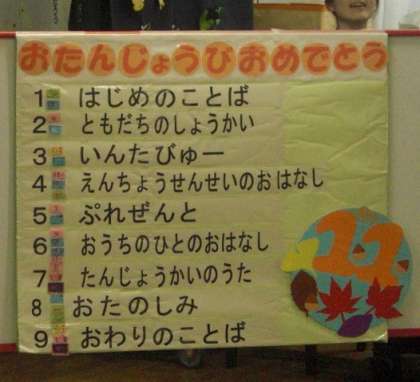 おたんじょうびおめでとう
1 はじめのことば
2 ともだちのしょうかい
3 いんたびゅー
4 えんちょうせんせいのおはなし
5 ぷれぜんと
6 おうちのひとのおはなし
7 たんじょうかいのうた
8 おたのしみ
9 おわりのことば
11